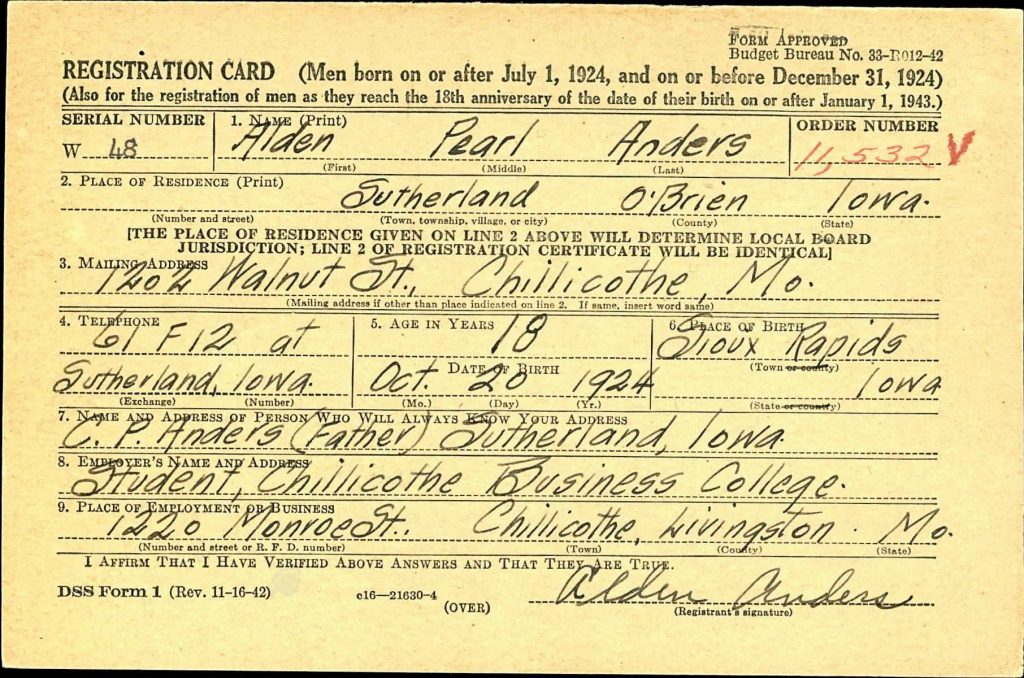 FORM APPROVED
Budget Bureau No. 33-R012-42
REGISTRATION CARD (Men born on or after July 1, 1924, and on or before December 31, 1924)
(Also for the registration of men as they reach the 18th anniversary of the date of their birth on or after January 1, 1943.)
SERIAL NUMBER 1. NAME (Print) ORDER NUMBER
W 48 Alden Pearl Anders 11,532 V
(First) (Middle) (Last)
2. PLACE OF RESIDENCE (Print)
Sutherland O'Brien Iowa.
(Number and street) (Town, township, village, or city) (County) (State)
[THE PLACE OF RESIDENCE GIVEN ON LINE 2 ABOVE WILL DETERMINE LOCAL BOARD
JURISDICTION; LINE 2 OF REGISTRATION CERTIFICATE WILL BE IDENTICAL]
3. MAILING ADDRESS
1202 Walnut St., Chillicothe, Mo.
(Mailing address if other than place indicated on line 2. If same, insert word same)
4. TELEPHONE 5. AGE IN YEARS 6. PLACE OF BIRTH
61 F12 at 18 Sioux Rapids
DATE OF BIRTH (Town or county)
Sutherland, Iowa. Oct. 20 1924 Iowa
(Exchange) (Number) (Mo.) (Day) (Yr.) (State or country)
7. NAME AND ADDRESS OF PERSON WHO WILL ALWAYS KNOW YOUR ADDRESS
C. P. Anders (Father) Sutherland, Iowa.
8. EMPLOYER'S NAME AND ADDRESS
Student, Chillicothe Business College.
9. PLACE OF EMPLOYMENT OR BUSINESS
1220 Monroe St. Chillicothe, Livingston. Mo.
(Number and street or R. F. D. number) (Town) (County) (State)
I AFFIRM THAT I HAVE VERIFIED ABOVE ANSWERS AND THAT THEY ARE TRUE.
DSS Form 1 (Rev. 11-16-42) c16—21630-4 (OVER) Alden Anders
(Registrant's signature)